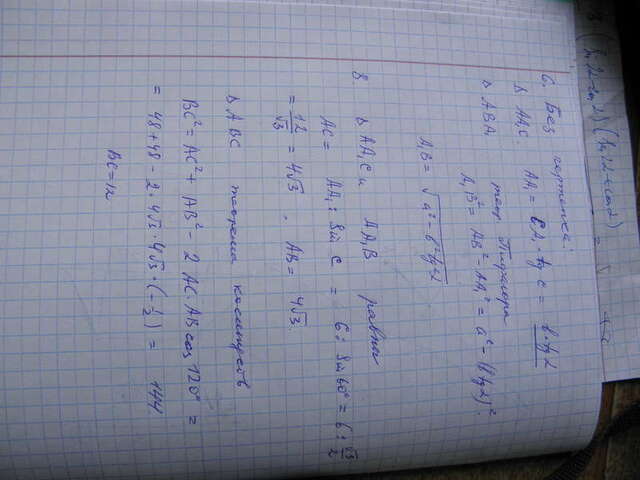 6. Без чертежа:
Δ AA₁C. AA₁ = CA₁ · tg C = b · tg α
Δ ABA₁ теор. Пифагора
A₁B² = AB² - AA₁² = a² - (b tg α)².
A₁B = √(a² - b² tg² α)
8. Δ AA₁C и AA₁B равны
AC = AA₁ : Sin C = 6 : Sin 60° = 6 : √3/2
= 12/√3 = 4√3, AB = 4√3.
Δ ABC теорема косинусов
BC² = AC² + AB² - 2 AC·AB cos 120° =
= 48 + 48 - 2 · 4√3 · 4√3 · (-1/2) = 144
BC = 12